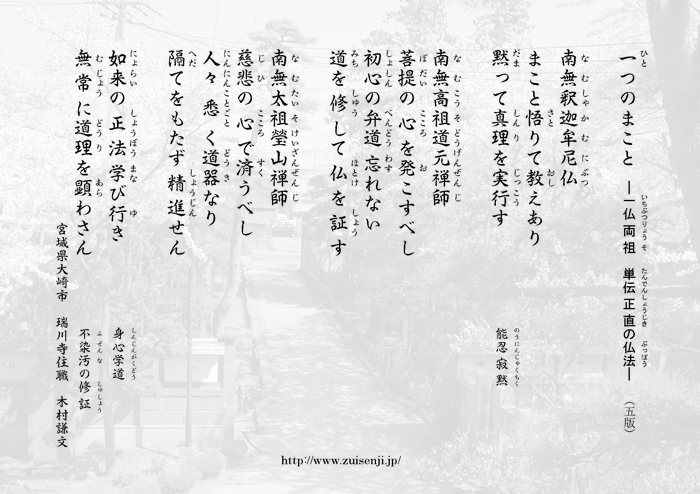 一つのまこと ―一仏両祖 単伝正直の仏法― (五版)
南無釈迦牟尼仏
まこと悟りて教えあり
黙って真理を実行す 能忍寂黙
南無高祖道元禅師
菩提の心を発こすべし
初心の弁道忘れない
道を修して仏を証す
南無太祖瑩山禅師
慈悲の心で済うべし
人々悉く道器なり
隔てをもたず精進せん
如来の正法学び行き 身心学道
無常に道理を顕わさん 不染汚の修証
宮城県大崎市 瑞川寺住職 木村謙文
http://www.zuisenji.jp/